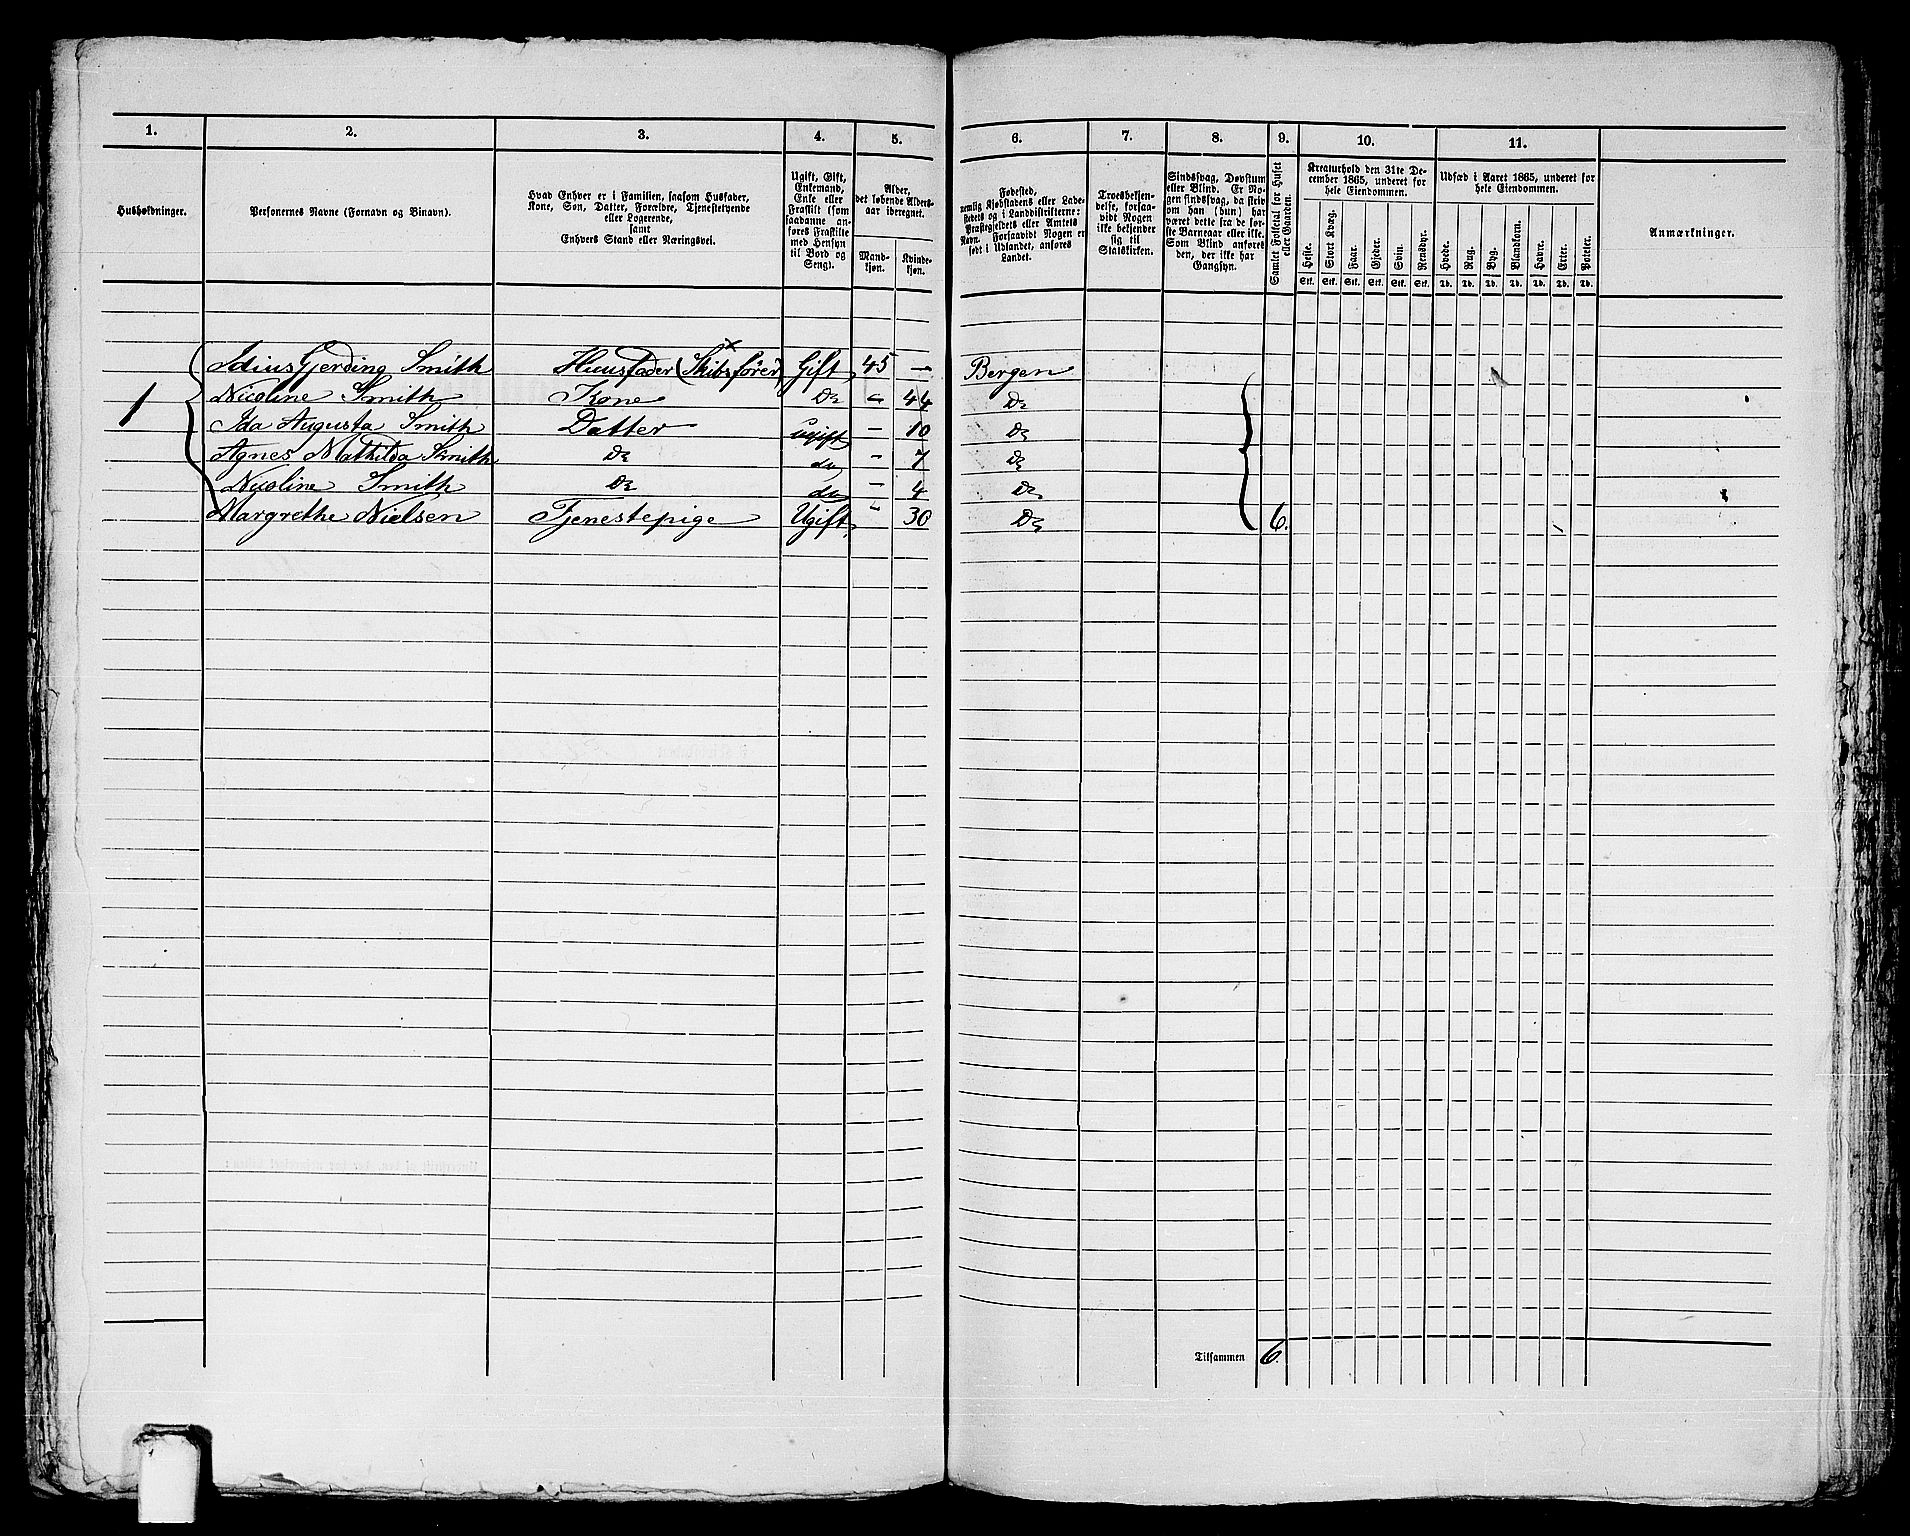 1. 2. 3. 4. 5. 6. 7. 8. 9. 10. 11.
Husholdninger.
Personernes Navne (Fornavn og Binavn).
Hvad Enhver er i Familien, saasom Husfader,
Kone, Søn, Datter, Forældre, Tjenestetyende
eller Logerende,
samt
Enhvers Stand eller Næringsvei.
Ugift, Gift,
Enkemand,
Enke eller
Fraskilt (som
saadanne an-
føres Fraskilte
med Hensyn
til Bord og
Seng).
Alder,
det løbende Alders-
aar iberegnet.
Mand-
kjøn.
Kvinde-
kjøn.
Fødested,
nemlig Kjøbstadens eller Lade-
stedets og i Landdistrikterne:
Præstegjeldets eller Amtets
Navn. Forsaavidt Nogen er
født i Udlandet, anføres
Landet.
Troesbekjen-
delse, forsaa-
vidt Nogen
ikke bekjender
sig til
Statskirken.
Sindssvag, Døvstum
eller Blind. Er No-
gen sindssvag, da skriv
om han (hun) har
været dette fra de før-
ste Barneaar eller ikke.
Som Blind anføres
den, der ikke har
Gangsyn.
Samlet Folketal for Huset
eller Gaarden.
Kreaturhold den 31te De-
cember 1865, underet for
hele Eiendommen.
Heste. Stort Kvæg. Faar. Gjeder. Svin. Rensdyr.
Stk. Stk. Stk. Stk. Stk. Stk.
Udsæd i Aaret 1865, underet for
hele Eiendommen.
Hvede. Rug. Byg. Blandkorn. Havre. Erter. Poteter.
Td. Td. Td. Td. Td. Td. Td.
Anmærkninger.
1 Idius Gjerding Smith Huusfader (Skibsfører) Gift 45 — Bergen
Nicoline Smith Kone Do - 44 Do
Ida Augusta Smith Datter ugift - 10 Do
Agnes Mathilda Smith Do do - 7 Do
Nicoline Smith Do do - 4 Do
Margrethe Nielsen Tjenestepige Ugift " 30 Do 6.
Tilsammen 6.